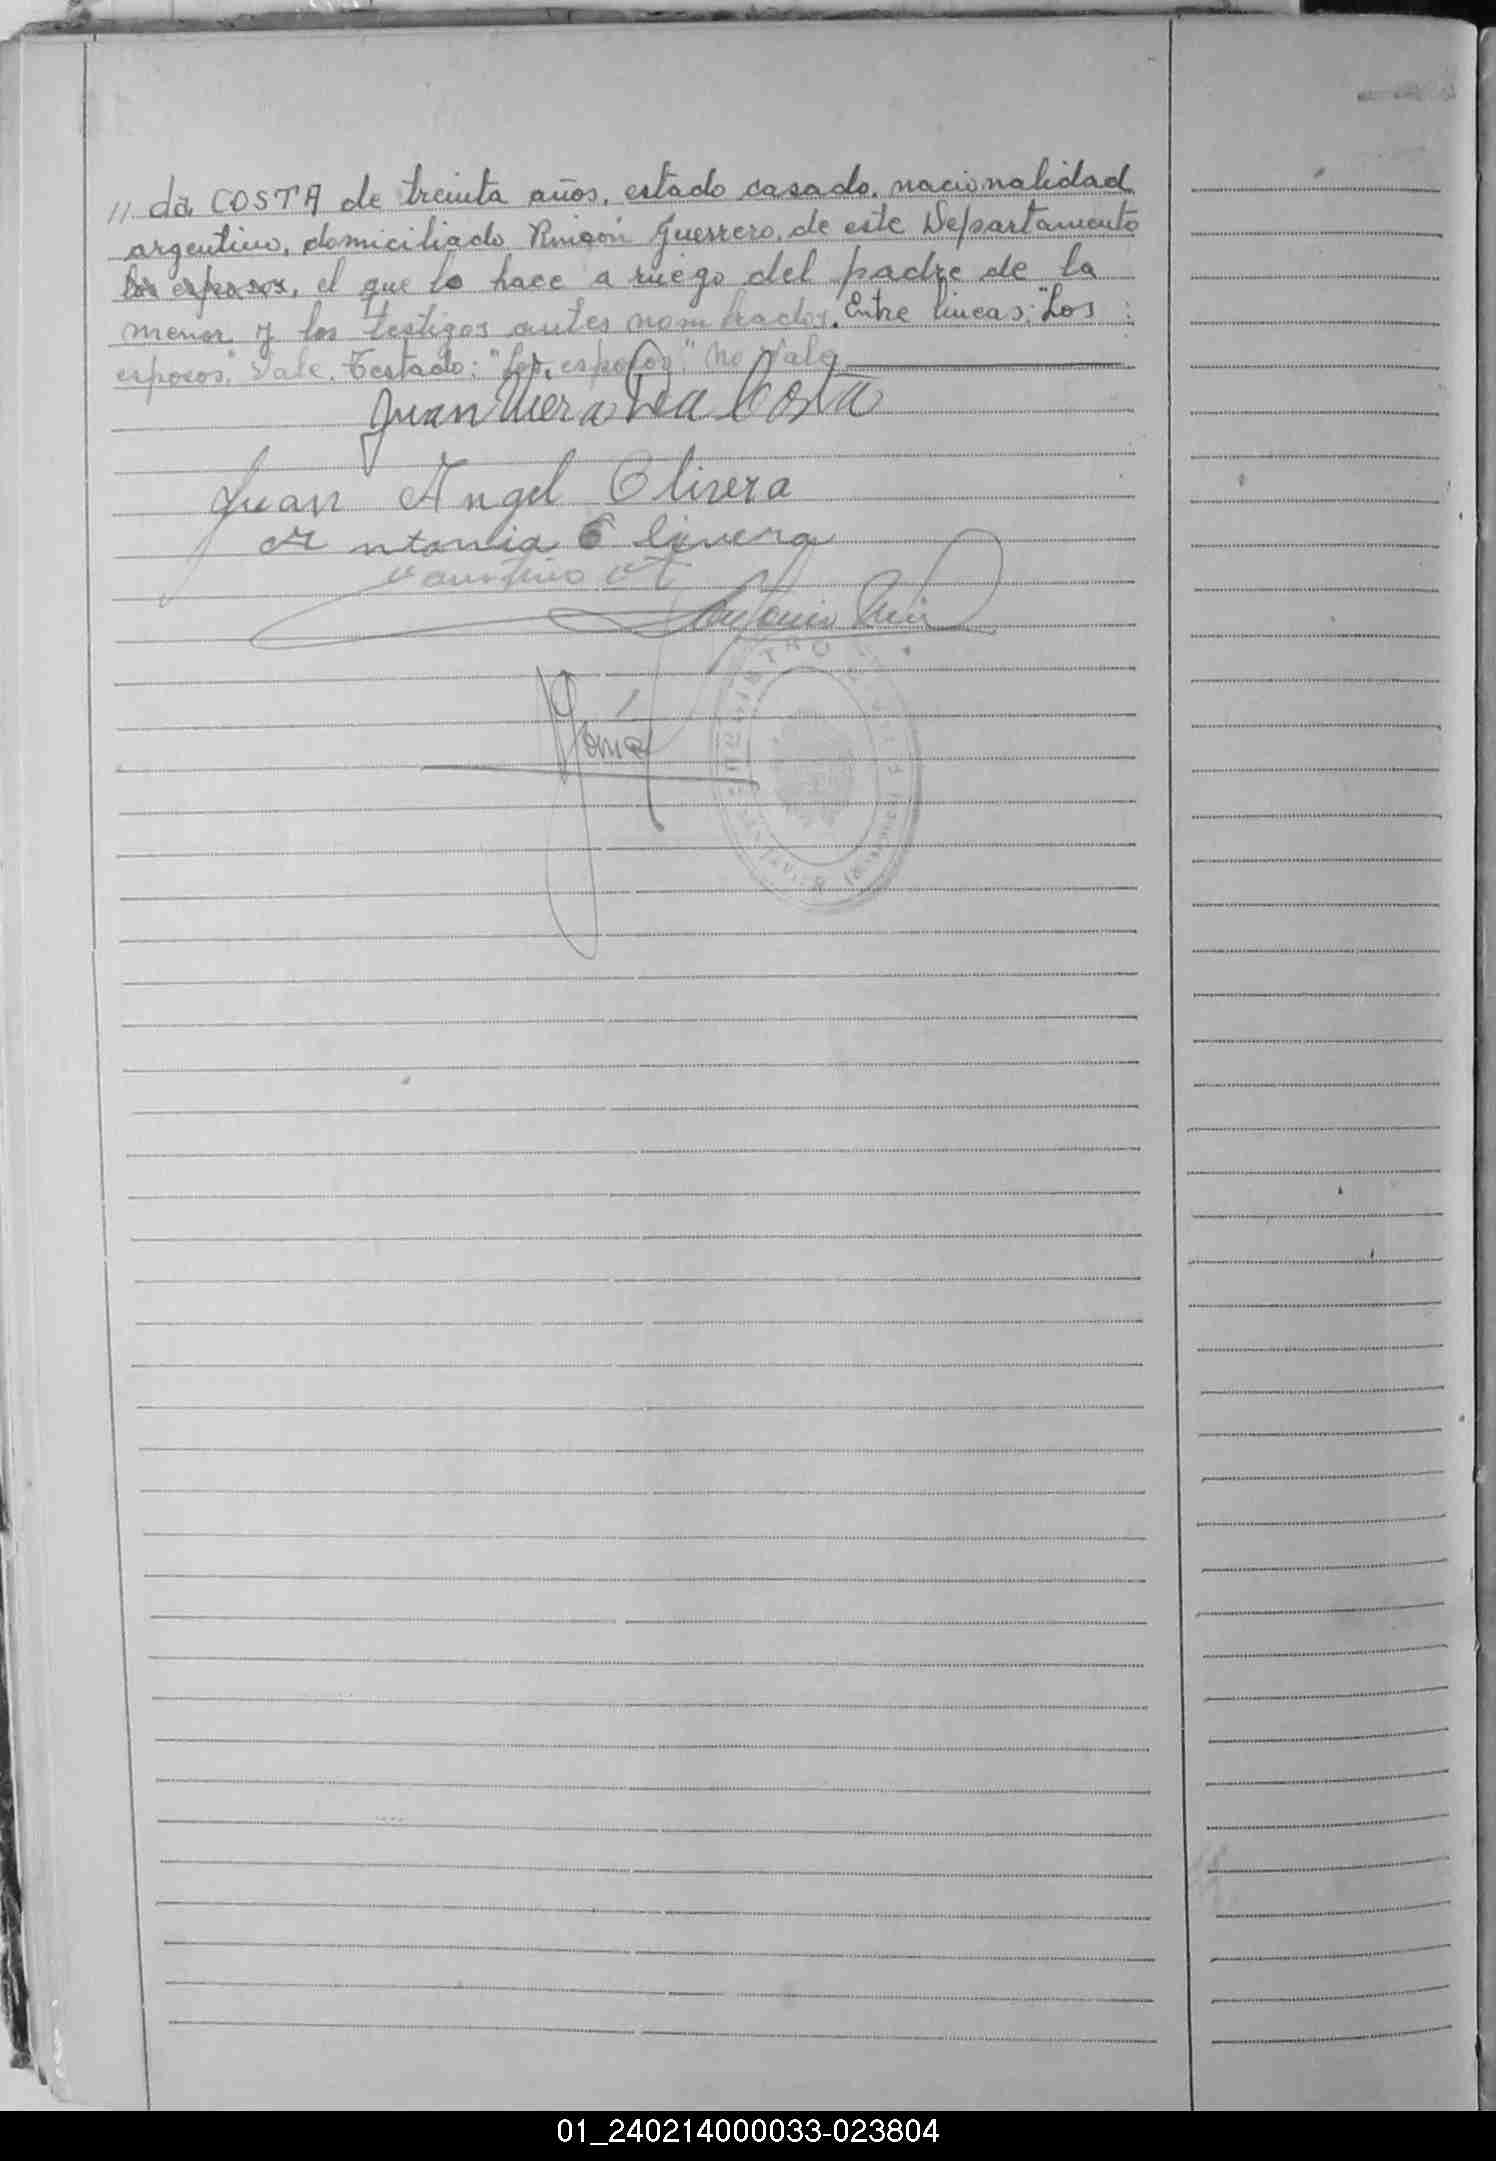 // da COSTA de treinta años, estado casado, nacionalidad
argentino, domiciliado Rincón Guerrero, de este Departamento
los esposos, el que lo hace a ruego del padre de la
menor y los testigos antes nombrados. Entre lineas: "Los
esposos." Vale. Testado: "Los esposos." No Vale
Juan
Da Costa
Juan Angel Olivera
Antonia Olivera
Faustino
Antonio
01_240214000033-023804